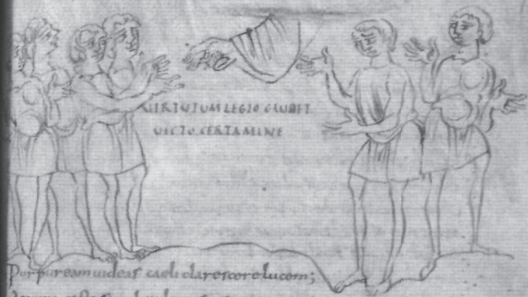 UIRTUTUM LEGIO GAUDET
UICTO CERTAMINE
Purpuream uideas caeli clarescere lucem;